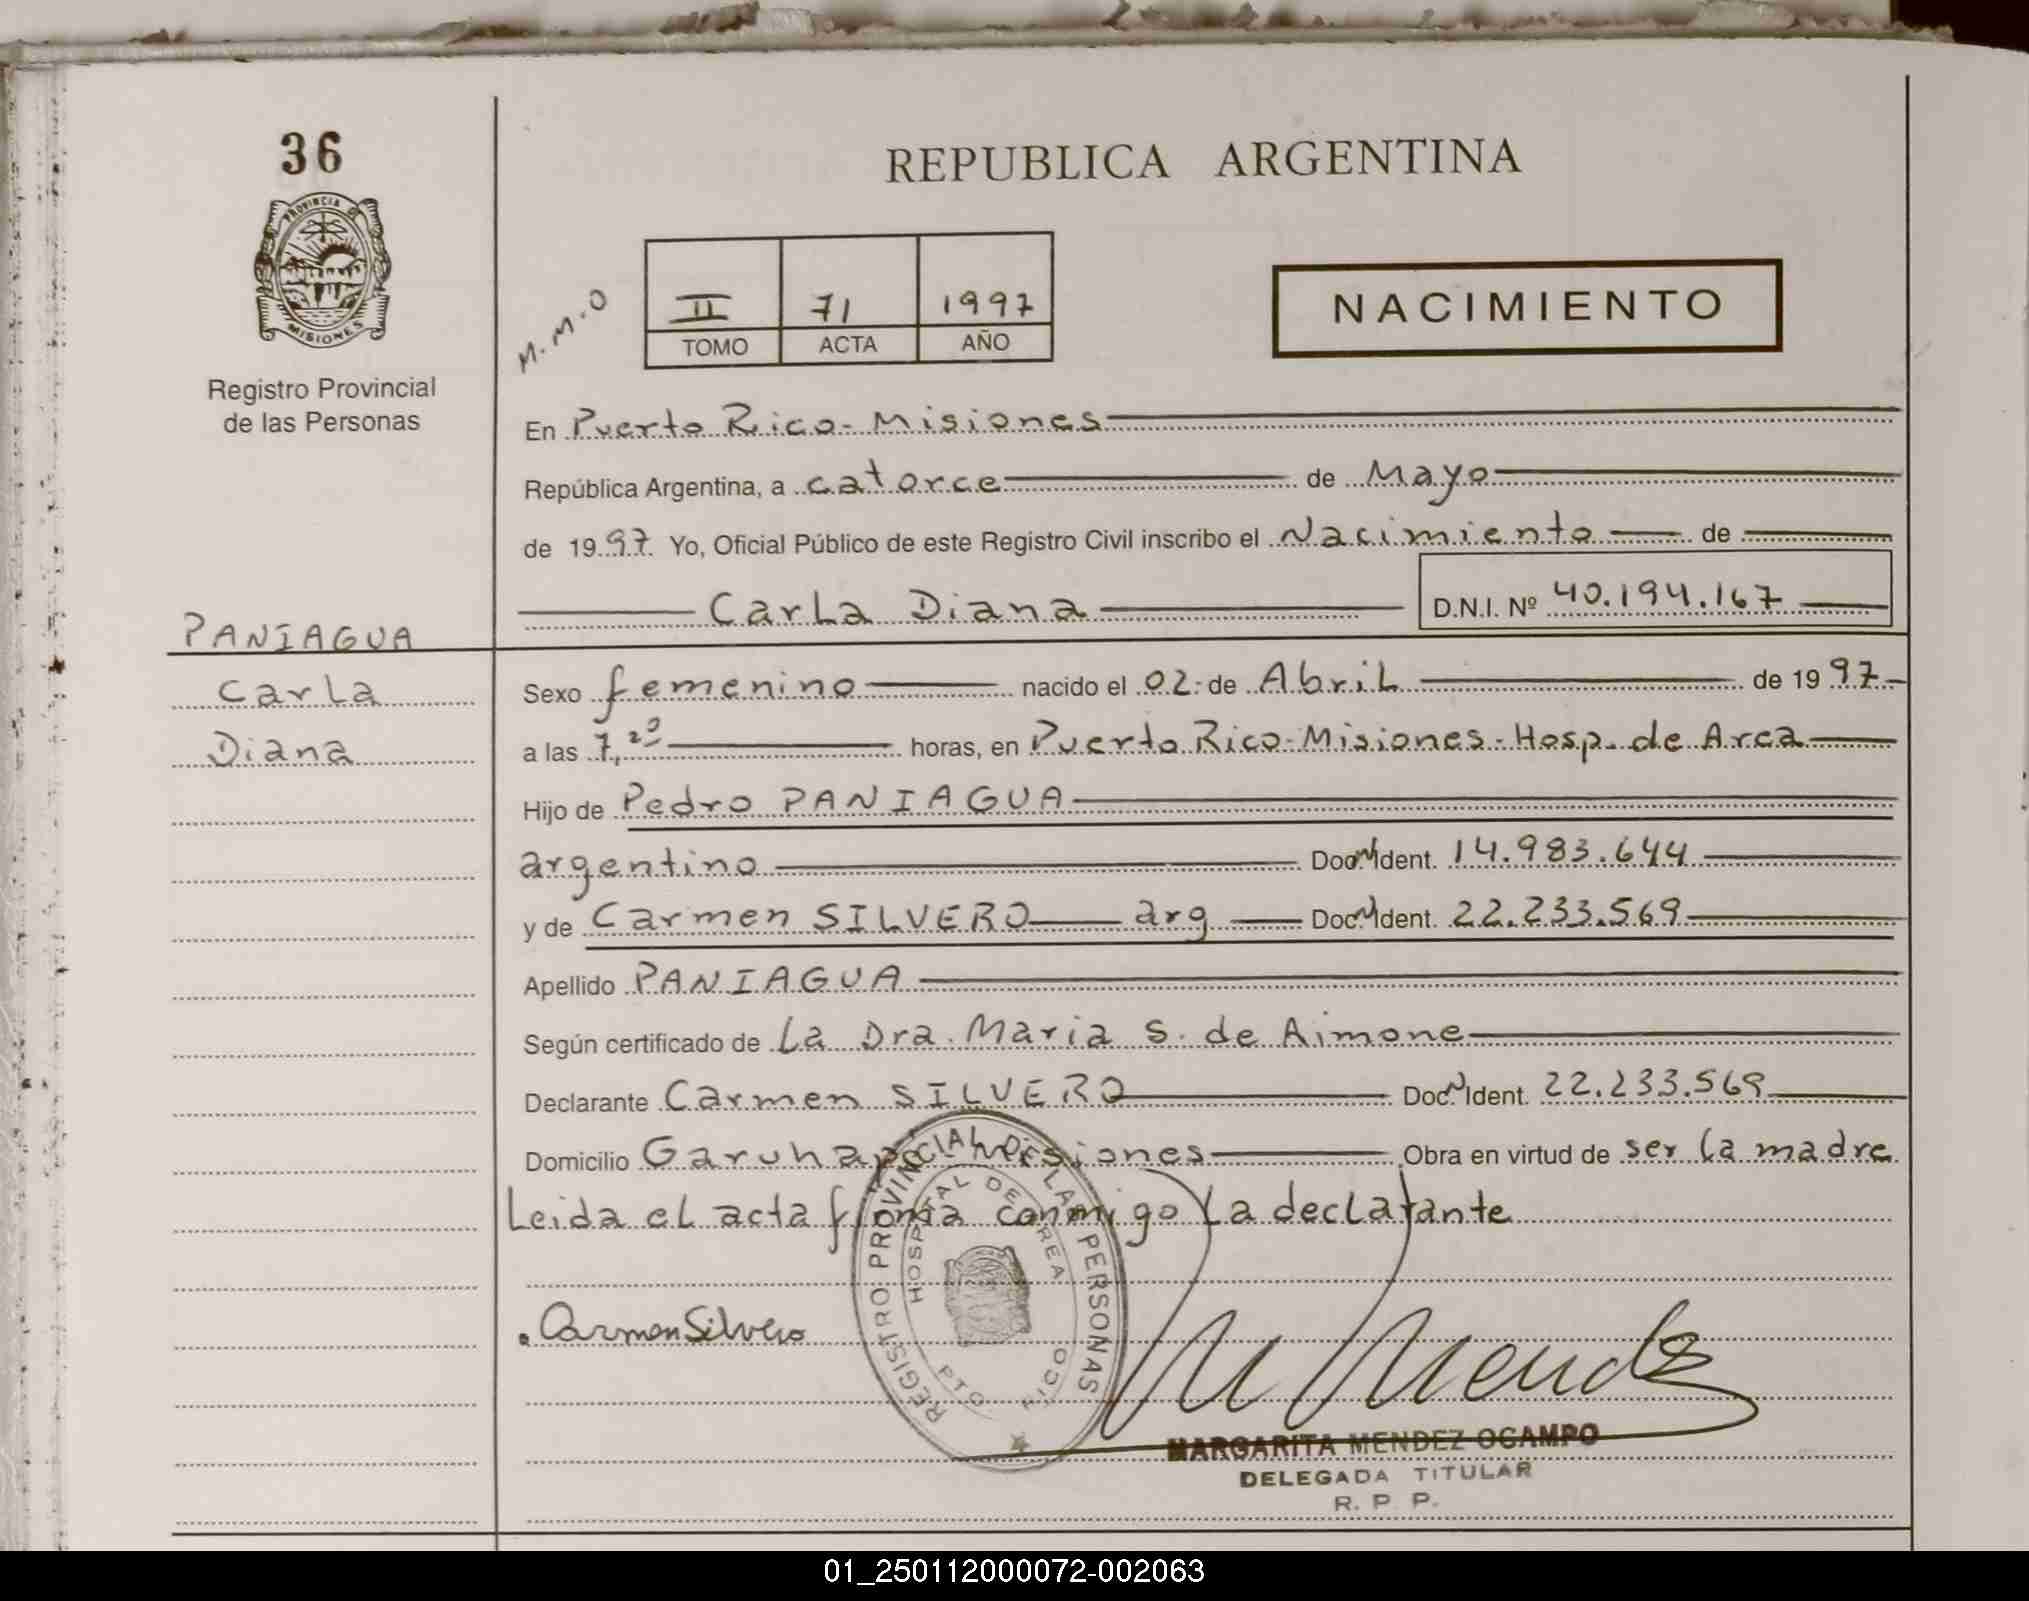 36
PROVINCIA DE
MISIONES
Registro Provincial
de las Personas
REPUBLICA ARGENTINA
M.M.O
II 71 1997
TOMO ACTA AÑO
NACIMIENTO
En Puerto Rico - Misiones
República Argentina, a catorce de Mayo
de 1997 Yo, Oficial Público de este Registro Civil inscribo el Nacimiento de
Carla Diana D.N.I. Nº 40.194.167
PANIAGUA
Carla
Diana
Sexo femenino nacido el 02 de Abril de 1997
a las 7,20 horas, en Puerto Rico - Misiones - Hosp. de Area
Hijo de Pedro PANIAGUA
argentino Doc. Ident. 14.983.644
y de Carmen SILVERO arg Doc. Ident. 22.233.569
Apellido PANIAGUA
Según certificado de La Dra. Maria S. de Aimone
Declarante Carmen SILVERO Doc. Ident. 22.233.569
Domicilio Garuhapé Misiones Obra en virtud de ser la madre
Leida el acta firma conmigo la declarante
REGISTRO PROVINCIAL DE LAS PERSONAS
HOSPITAL DE AREA
PTO. RICO
Carmen Silvero
M Mendez
MARGARITA MENDEZ OCAMPO
DELEGADA TITULAR
R. P. P.
01_250112000072-002063